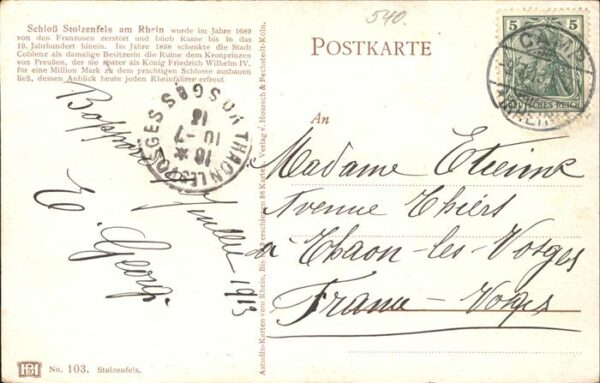 Schloß Stolzenfels am Rhein wurde im Jahre 1689
von den Franzosen zerstört und blieb Ruine bis in das
19. Jahrhundert hinein. Im Jahre 1838 schenkte die Stadt
Coblenz als damalige Besitzerin die Ruine dem Kronprinzen
von Preußen, der sie später als König Friedrich Wilhelm IV.
für eine Million Mark zu dem prachtigen Schlosse ausbauen
ließ, dessen Anblick heute jeden Rheinfahrer erfreut
540.
POSTKARTE
5 5
DEUTSCHES REICH
THAON LES VOSGES
VOSGES
16 *
10 -7
13
Boppard
Juillet 1913
E. Georg.
Madame Etienne
Avenue Thiers
à Thaon-les-Vosges
France - Vosges
Astudin-Karten vom Rhein. Bis erschienen 38 Karten. Verlag v. Hoursch & Bechstedt-Köln.
HB
No. 103. Stolzenfels.